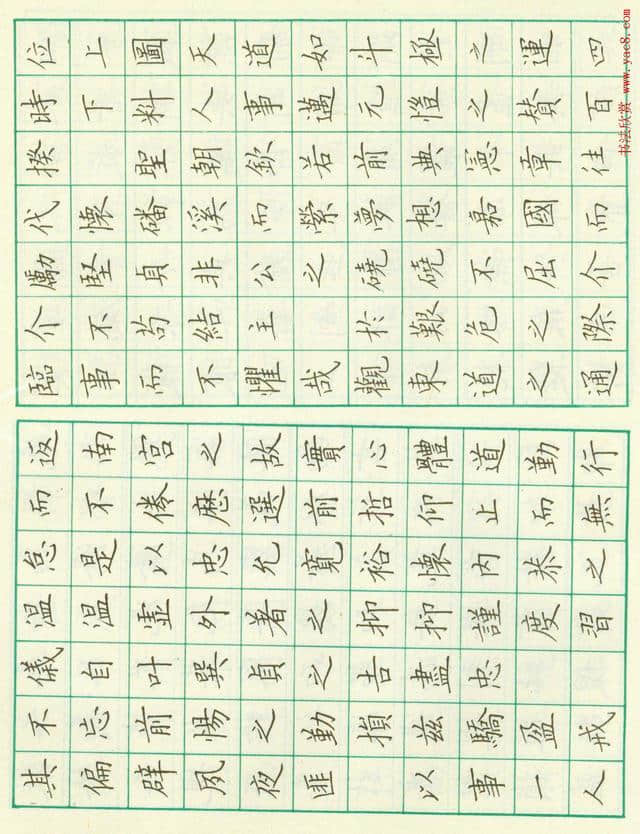 位上圖天道如斗極之運四
時下料人事邁元愷之贊百
揆聖朝欽若前典憲章往
代懷磻溪而縈夢想嘉國而
勵堅貞非公之磽磽不屈介
介不苟結主於艱危之際
臨事而不懼哉觀東道之通
返南宮之故實心體道勤行
而不倦歷選前哲仰止而無
怠是以忠允寬裕懷內恭之
溫溫虛外著之抑抑謹度習
儀自叶巽貞之吉盡忠
不忘前惕之勤損茲驕盈戒
其偏辟夙夜匪以事一人
书法欣赏 www.yac8.com